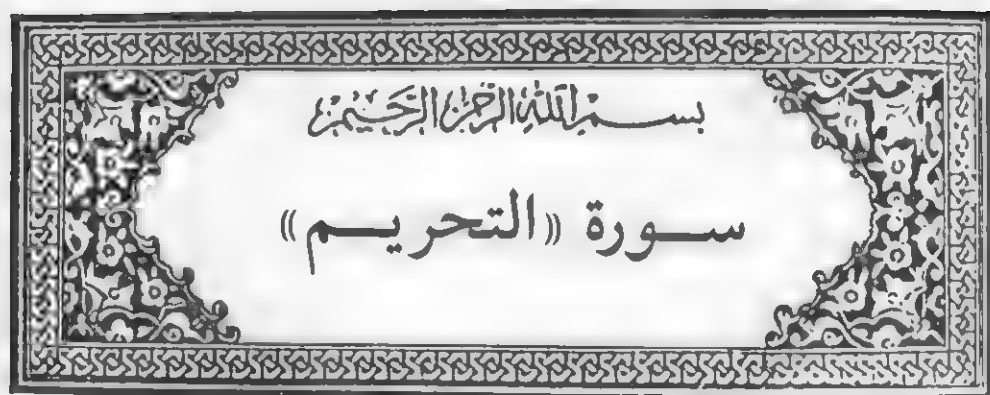 بسم الله الرحمن الرحيم
سورة «التحريم»